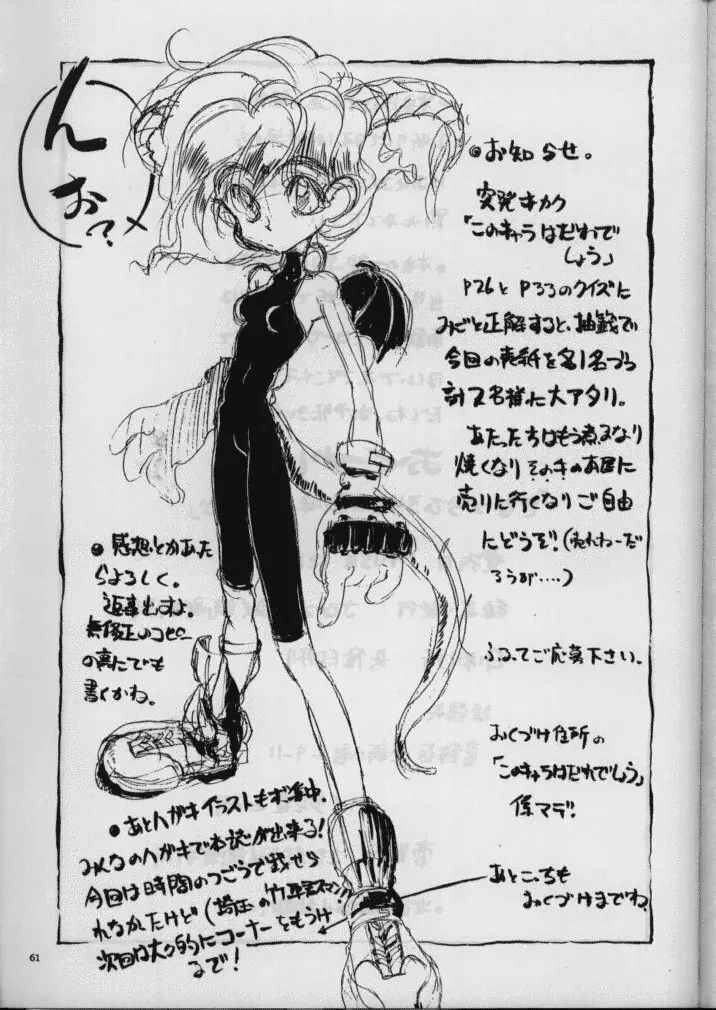 ん
お?
●お知らせ。
突発キカク
「このキャラはだれで
しょう」
P26とP33のクイズに
みごと正解すると、抽籤で
今回の表紙を各1名づつ
計2名様に大アタリ。
あたった方はもう煮るなり
焼くなりそのキのお店に
売りに行くなりご自由
にどうぞ!(売れねーだ
ろうが....)
ふるってご応募下さい。
おくづけ住所の
「このキャラはだれでしょう」
係マデ!
あとこっちも
おくづけまでね
●感想とかあた
らよろしく。
返事出すよ。
無修正のコピー
の裏にでも
書くかね。
●あとハガキイラストもボ集中。
みんなのハガキで本誌が出来る!
今回は時間のつごうで載せら
れなかたけど(埼玉の竹平君スマン!!)
次回は大々的にコーナーをもうけ
るで!
61